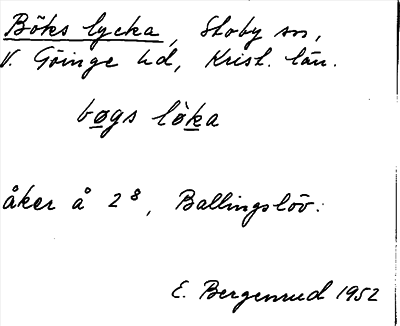 Böks lycka, Stoby sn,
V. Göinge hd, Krist. län.
bøgs lòka
åker å 2⁸, Ballingslöv.
E. Bergenrud 1952